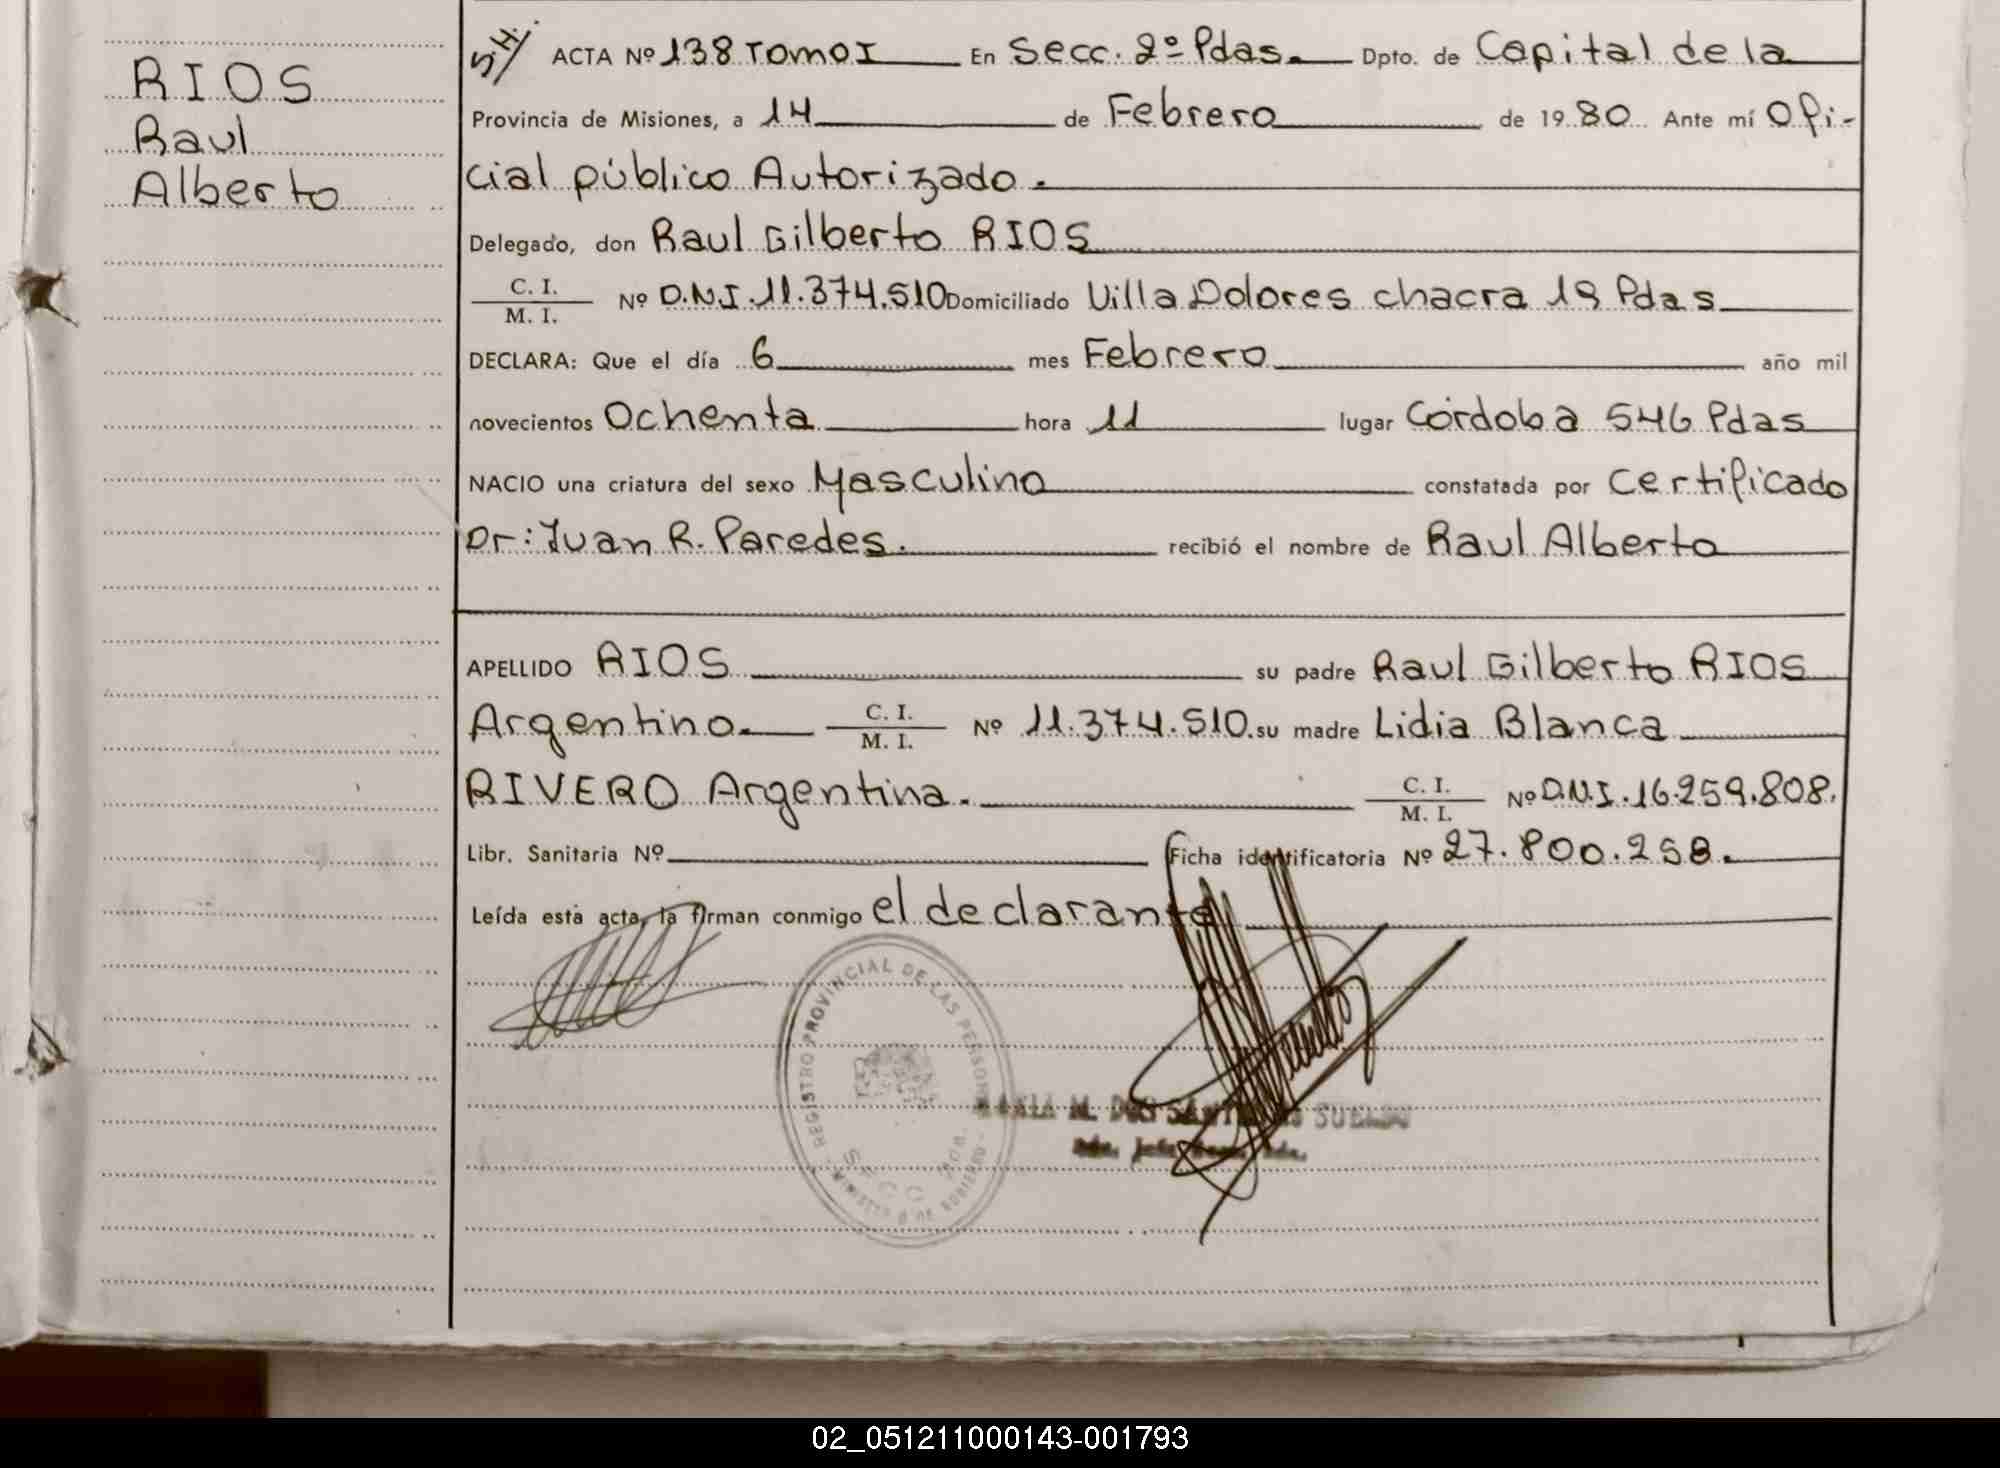 RIOS
Raul
Alberto
S.H. ACTA Nº 138 Tomo I En Secc. 2º Pdas. Dpto. de Capital de la
Provincia de Misiones, a 14 de Febrero de 19 80 Ante mí Ofi-
cial público Autorizado.
Delegado, don Raul Gilberto RIOS
C. I.
M. I. Nº D.N.I. 11.374.510 Domiciliado Villa Dolores chacra 19 Pdas
DECLARA: Que el día 6 mes Febrero año mil
novecientos Ochenta hora 11 lugar Córdoba 546 Pdas
NACIO una criatura del sexo Masculino constatada por Certificado
Dr: Juan R. Paredes. recibió el nombre de Raul Alberto
APELLIDO RIOS su padre Raul Gilberto RIOS
Argentino. C. I. M. I. Nº 11.374.510. su madre Lidia Blanca
RIVERO Argentina. C. I. M. I. Nº D.N.I. 16.259.808.
Libr. Sanitaria Nº Ficha identificatoria Nº 27.800.258.
Leída esta acta, la firman conmigo el declarante
REGISTRO PROVINCIAL DE LAS PERSONAS
MINISTERIO DE GOBIERNO
SECC
MARIA M. DOS SANTOS
02_051211000143-001793